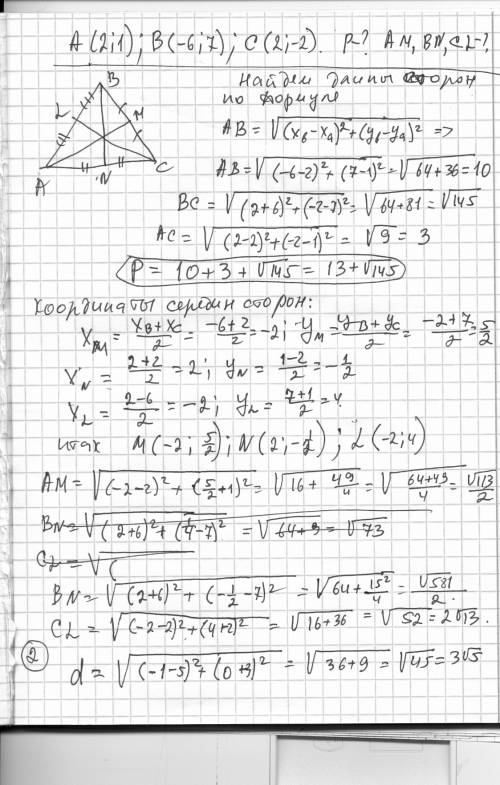 A(2;1); B(-6;7); C(2;-2). P-? AM, BN, CL-?
Найдем длины сторон
по формуле
B
L
M
A
N
C
AB = √((x_B-x_A)²+(y_B-y_A)²) =>
AB = √((-6-2)²+(7-1)²) = √(64+36) = 10
BC = √((2+6)²+(-2-7)²) = √(64+81) = √145
AC = √((2-2)²+(-2-1)²) = √9 = 3
P = 10+3+√145 = 13+√145
Координаты середин сторон:
X_M = (X_B+X_C)/2 = (-6+2)/2 = -2; y_M = (y_B+y_C)/2 = (-2+7)/2 = 5/2
X_N = (2+2)/2 = 2; y_N = (1-2)/2 = -1/2
X_L = (2-6)/2 = -2; y_L = (7+1)/2 = 4
итак M(-2; 5/2); N(2; -1/2); L(-2; 4)
AM = √((-2-2)²+(5/2+1)²) = √(16+49/4) = √((64+49)/4) = √113/2
BN = √((2+6)²+(4-7)²) = √(64+9) = √73
CL = √(
BN = √((2+6)²+(-1/2-7)²) = √(64+15²/4) = √581/2.
CL = √((-2-2)²+(4+2)²) = √(16+36) = √52 = 2√13.
2
d = √((-1-5)²+(0+3)²) = √(36+9) = √45 = 3√5